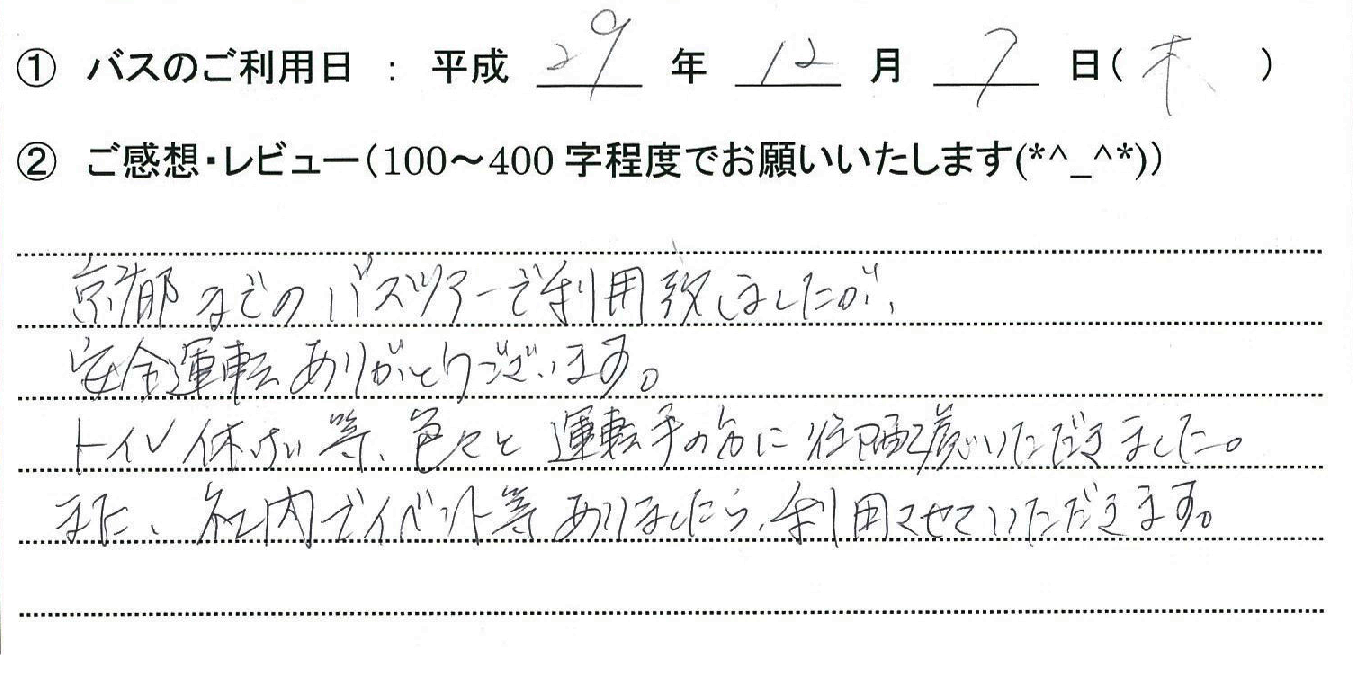 ① バスのご利用日 : 平成 29 年 12 月 7 日( 木 )
② ご感想・レビュー(100～400 字程度でお願いいたします(*^_^*))
京都までのバスツアーで利用致しましたが、
安全運転ありがとうございます。
トイレ休けい等、色々と運転手の方に いただきました。
また、社内でイベント等ありましたら、利用させていただきます。